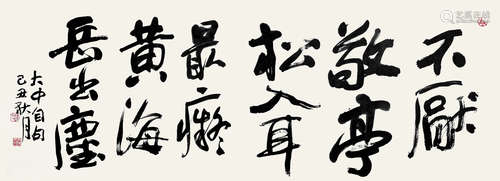 不厭
敬亭
松入耳
最癡
黄海
岳出塵
大中自句
己丑秋月